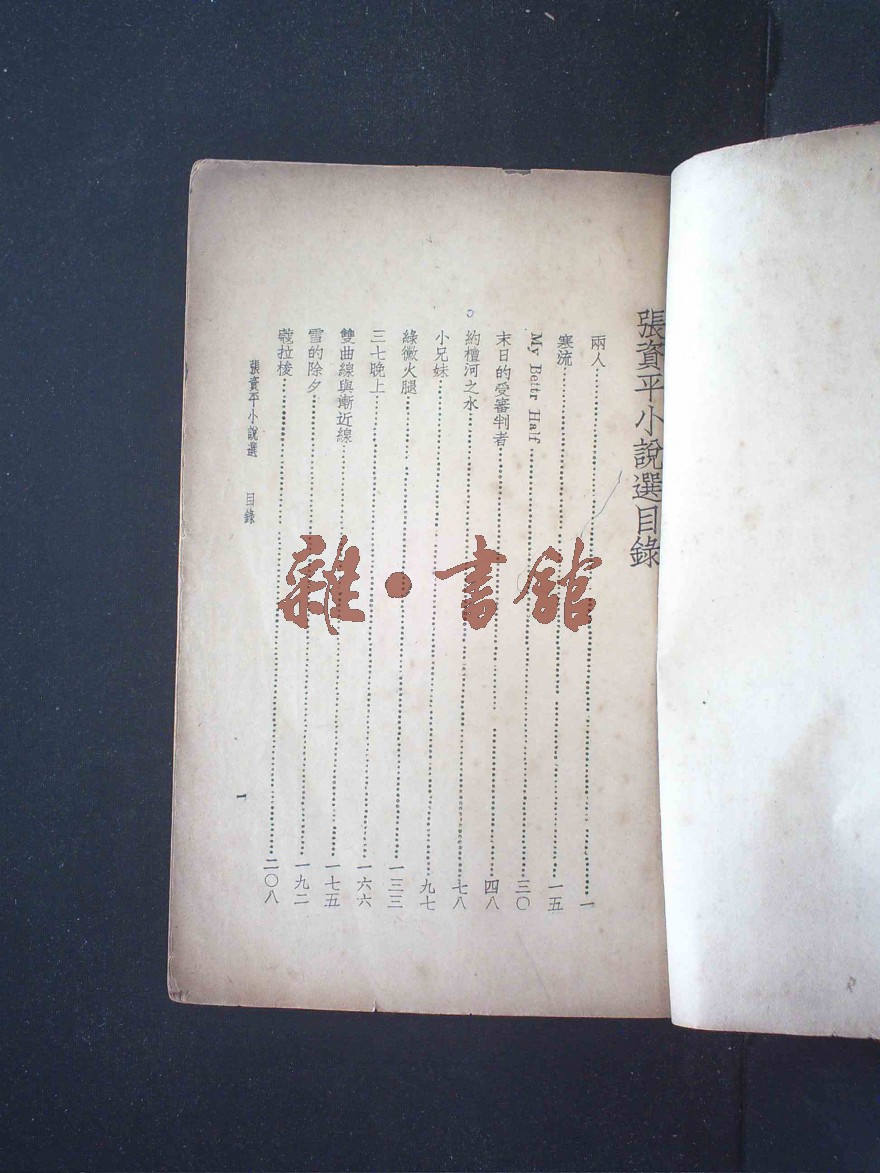 張資平小說選目錄
兩人 一
寒流 一五
My Bettr Half 三〇
末日的受審判者 四八
約檀河之水 七八
小兄妹 九七
綠黴火腿 一三三
三七晚上 一六六
雙曲線與漸近線 一七五
雪的除夕 一九二
蔻拉梭 二〇八
張資平小說選 目錄
一
雜·書館